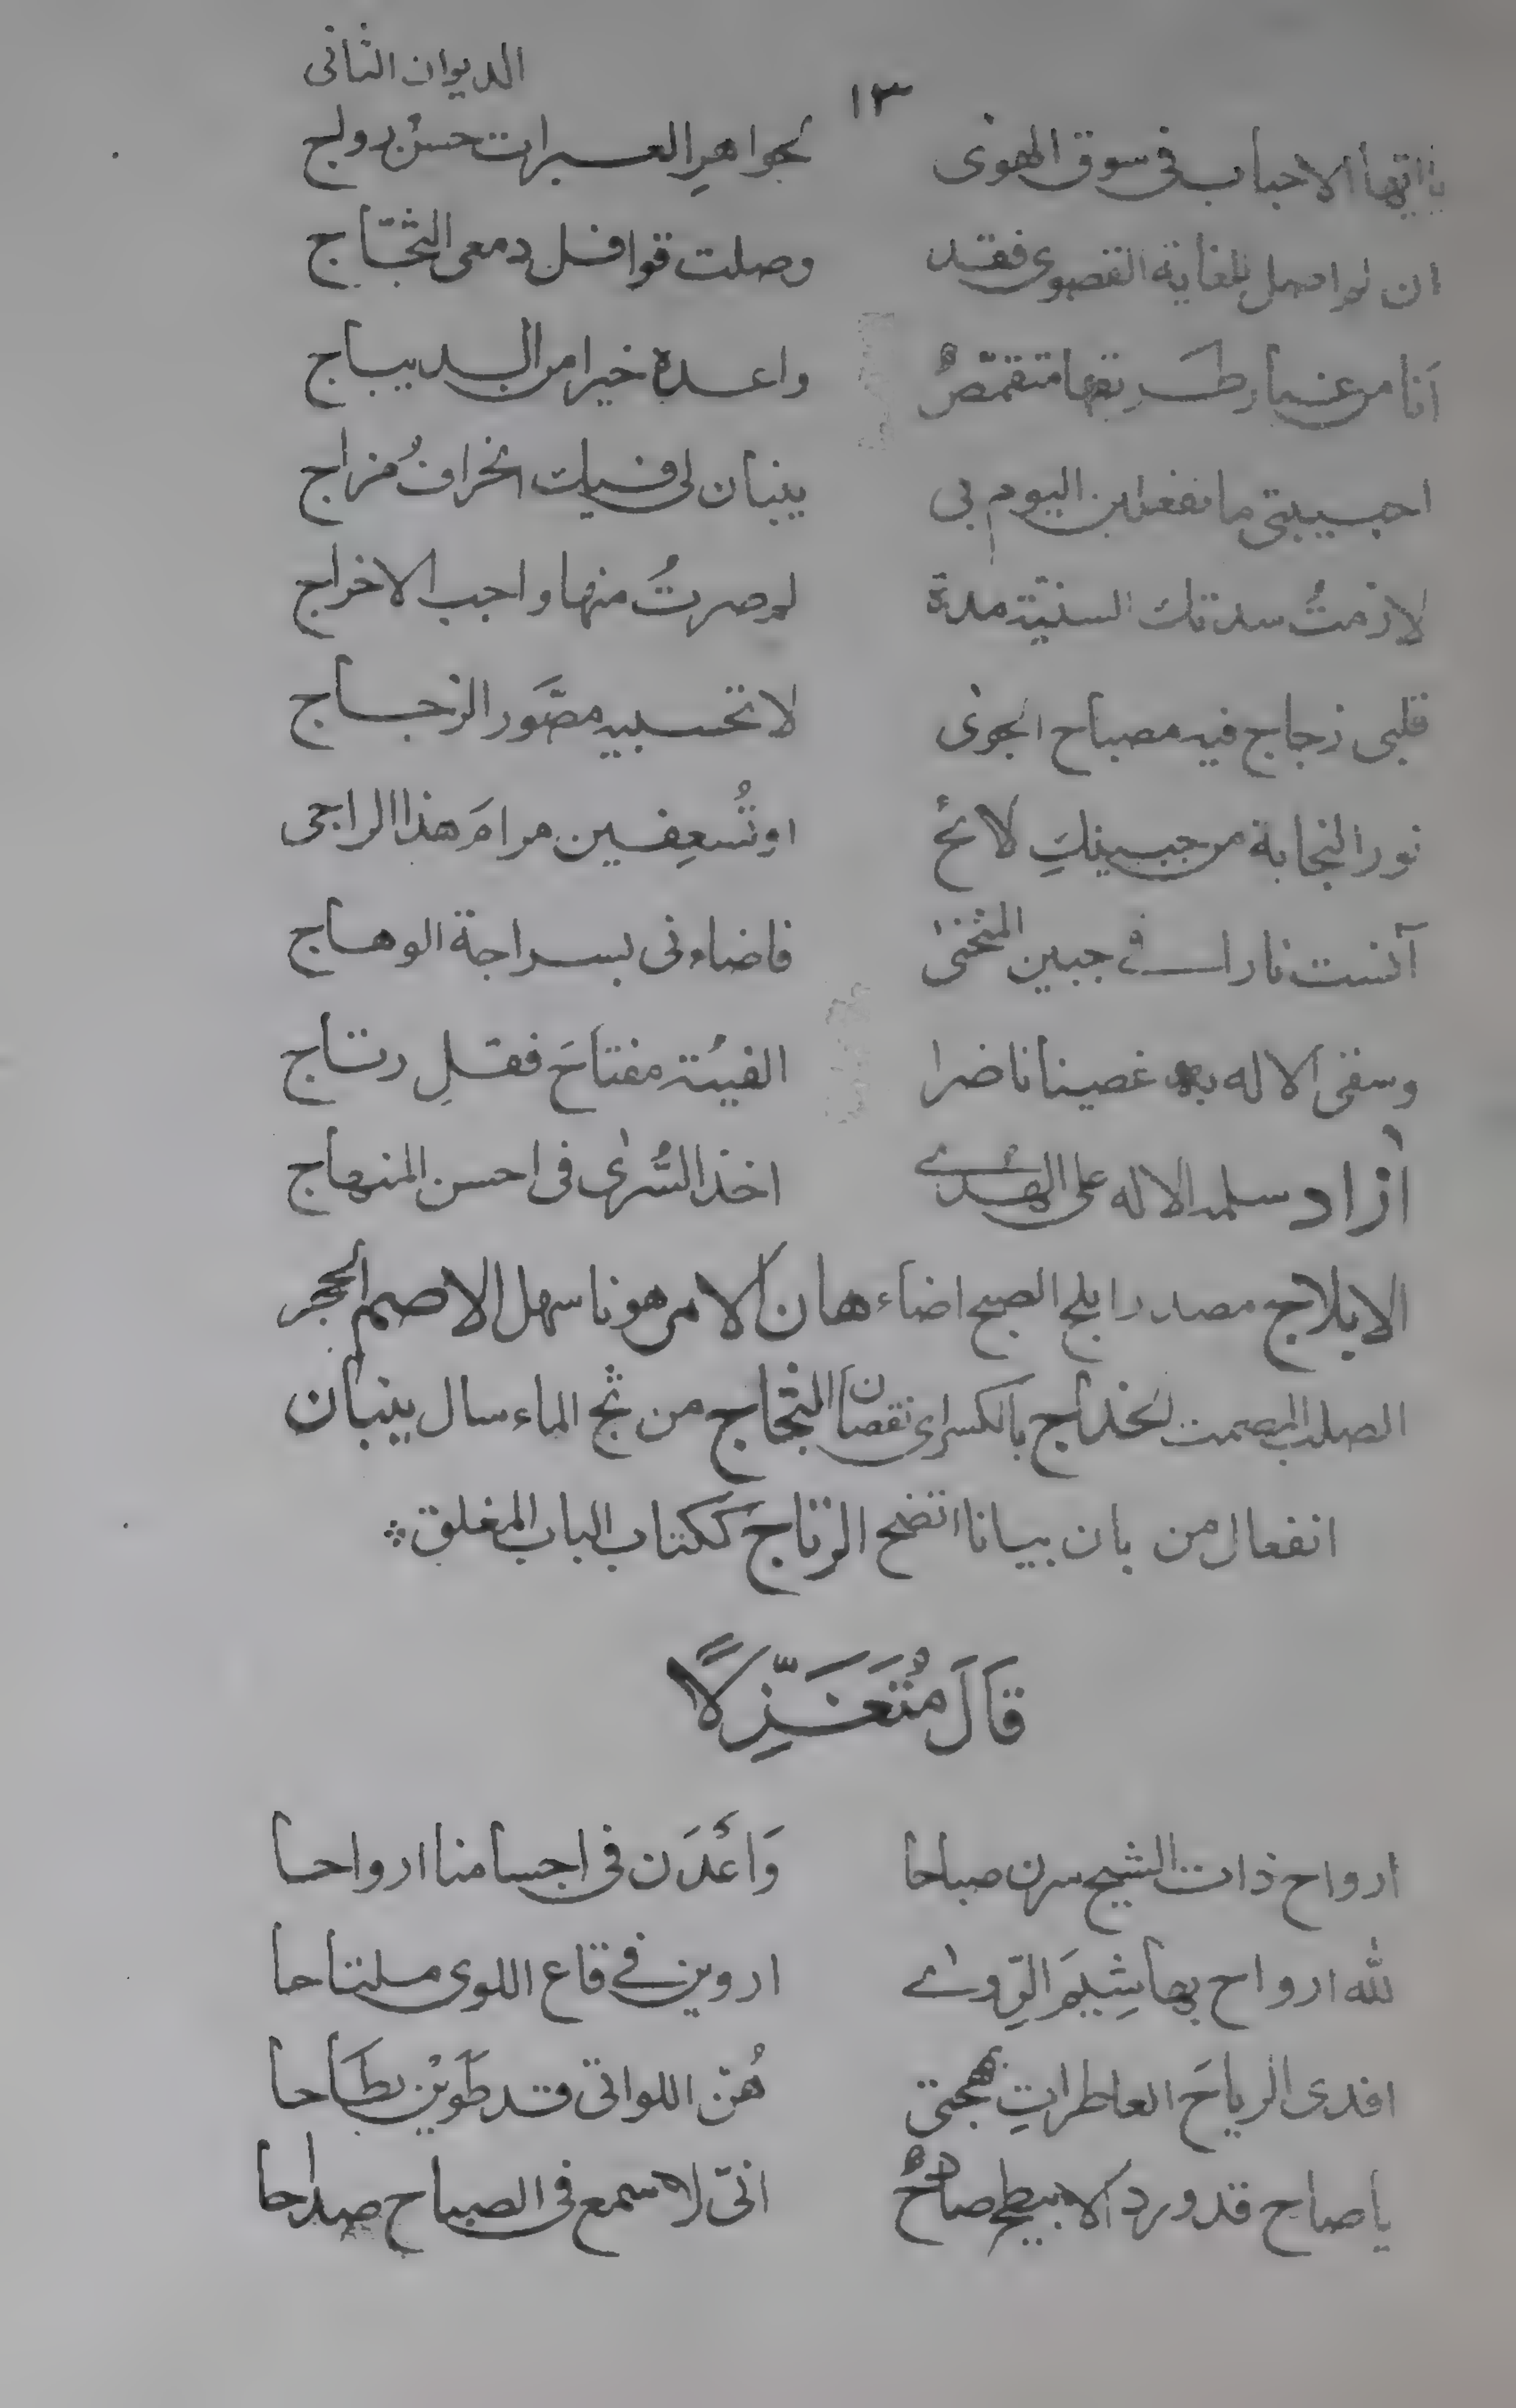 الديوان الثانى
١٣
يا ايها الاحباب فى سوق الهوىٰ لجواهرِ العبرات حسنُ رواج
ان لم اصل للغاية القصوى فقد وصلت قوافل دمعى الثجّاج
اَنا من غبار طَريقها متقمّصٌ واعده خيرا من الديباج
احبيبتى ما تفعلين اليوم بى ينبان لى فيك انحرافُ مزاج
لازمتُ سدتك السنيّة مدة لم صرتُ منها واجب الاخراج
قلبى زجاج فيه مصباح الجوىٰ لا تحسبيه مصَّور الزجاج
نور النجابة من جبينكِ لائحٌ اوتُسعِفين مرامَ هذا الراجى
آنست نارا فى جبين المنحنىٰ فاضاءنى بسراجة الوهاج
وسقى الاله به غصينا ناضرا الفيتُه مفتاحَ فقلِ رتاج
اٰزاد سلمه الاله على الهدىٰ اخذ السُّرىٰ فى احسن المنهاج
الابلاج مصدر ابلج الصبح اضاء هان الامر هونا سهل الاصم الحجر
الصلب المصمت الخداج بالكسر اى نقصان الثجاج من ثج الماء سال ينبان
انفعال من بان بيانا اتضح الرتاج ككتاب الباب المغلق
قَالَ مُتَغَزِّلًا
ارواح ذات الشيح سرن صباحا وَاَعَدَن فى اجسامنا ارواحا
لله ارواح بها شِيَمَ الرِّوىٰ اروين فى قاع اللوى ملتاحا
افدى الرياحَ العاطراتِ بمهجتى هُنّ اللواتى قد طَوَيْن بطَاحا
يا صاح قد ورد الابيطح صادحٌ انىّ لاسمع فى الصباح صداحا